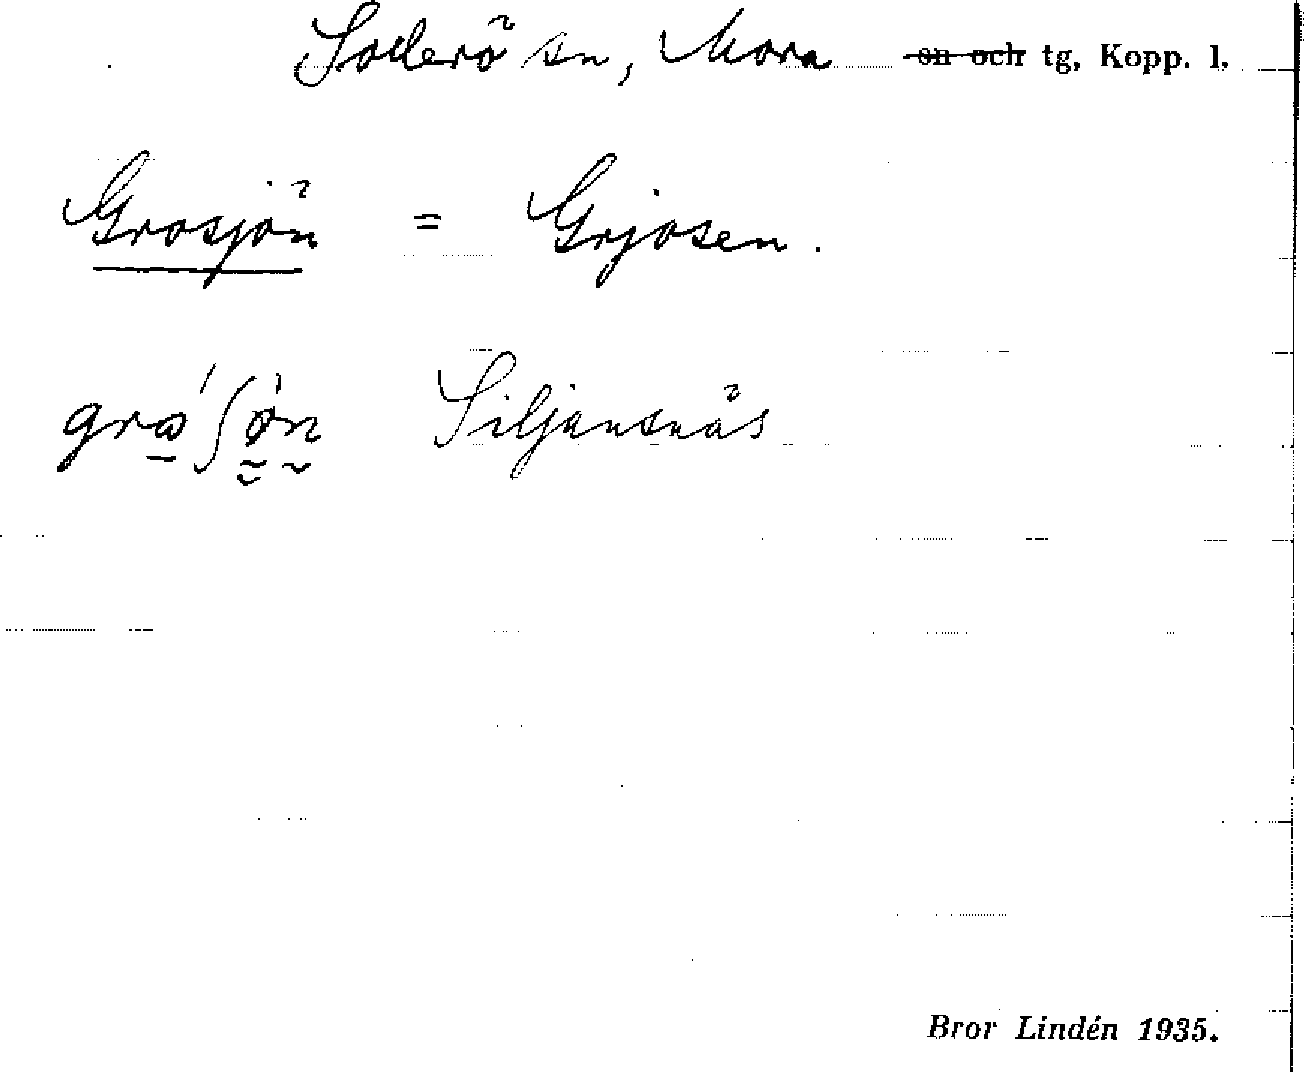 Sollerö sn, Mora ~~sn och~~ tg, Kopp. l.
Grosjön = Grjosen.
grɷ̠´ʃøn Siljansnäs
Bror Lindén 1935.